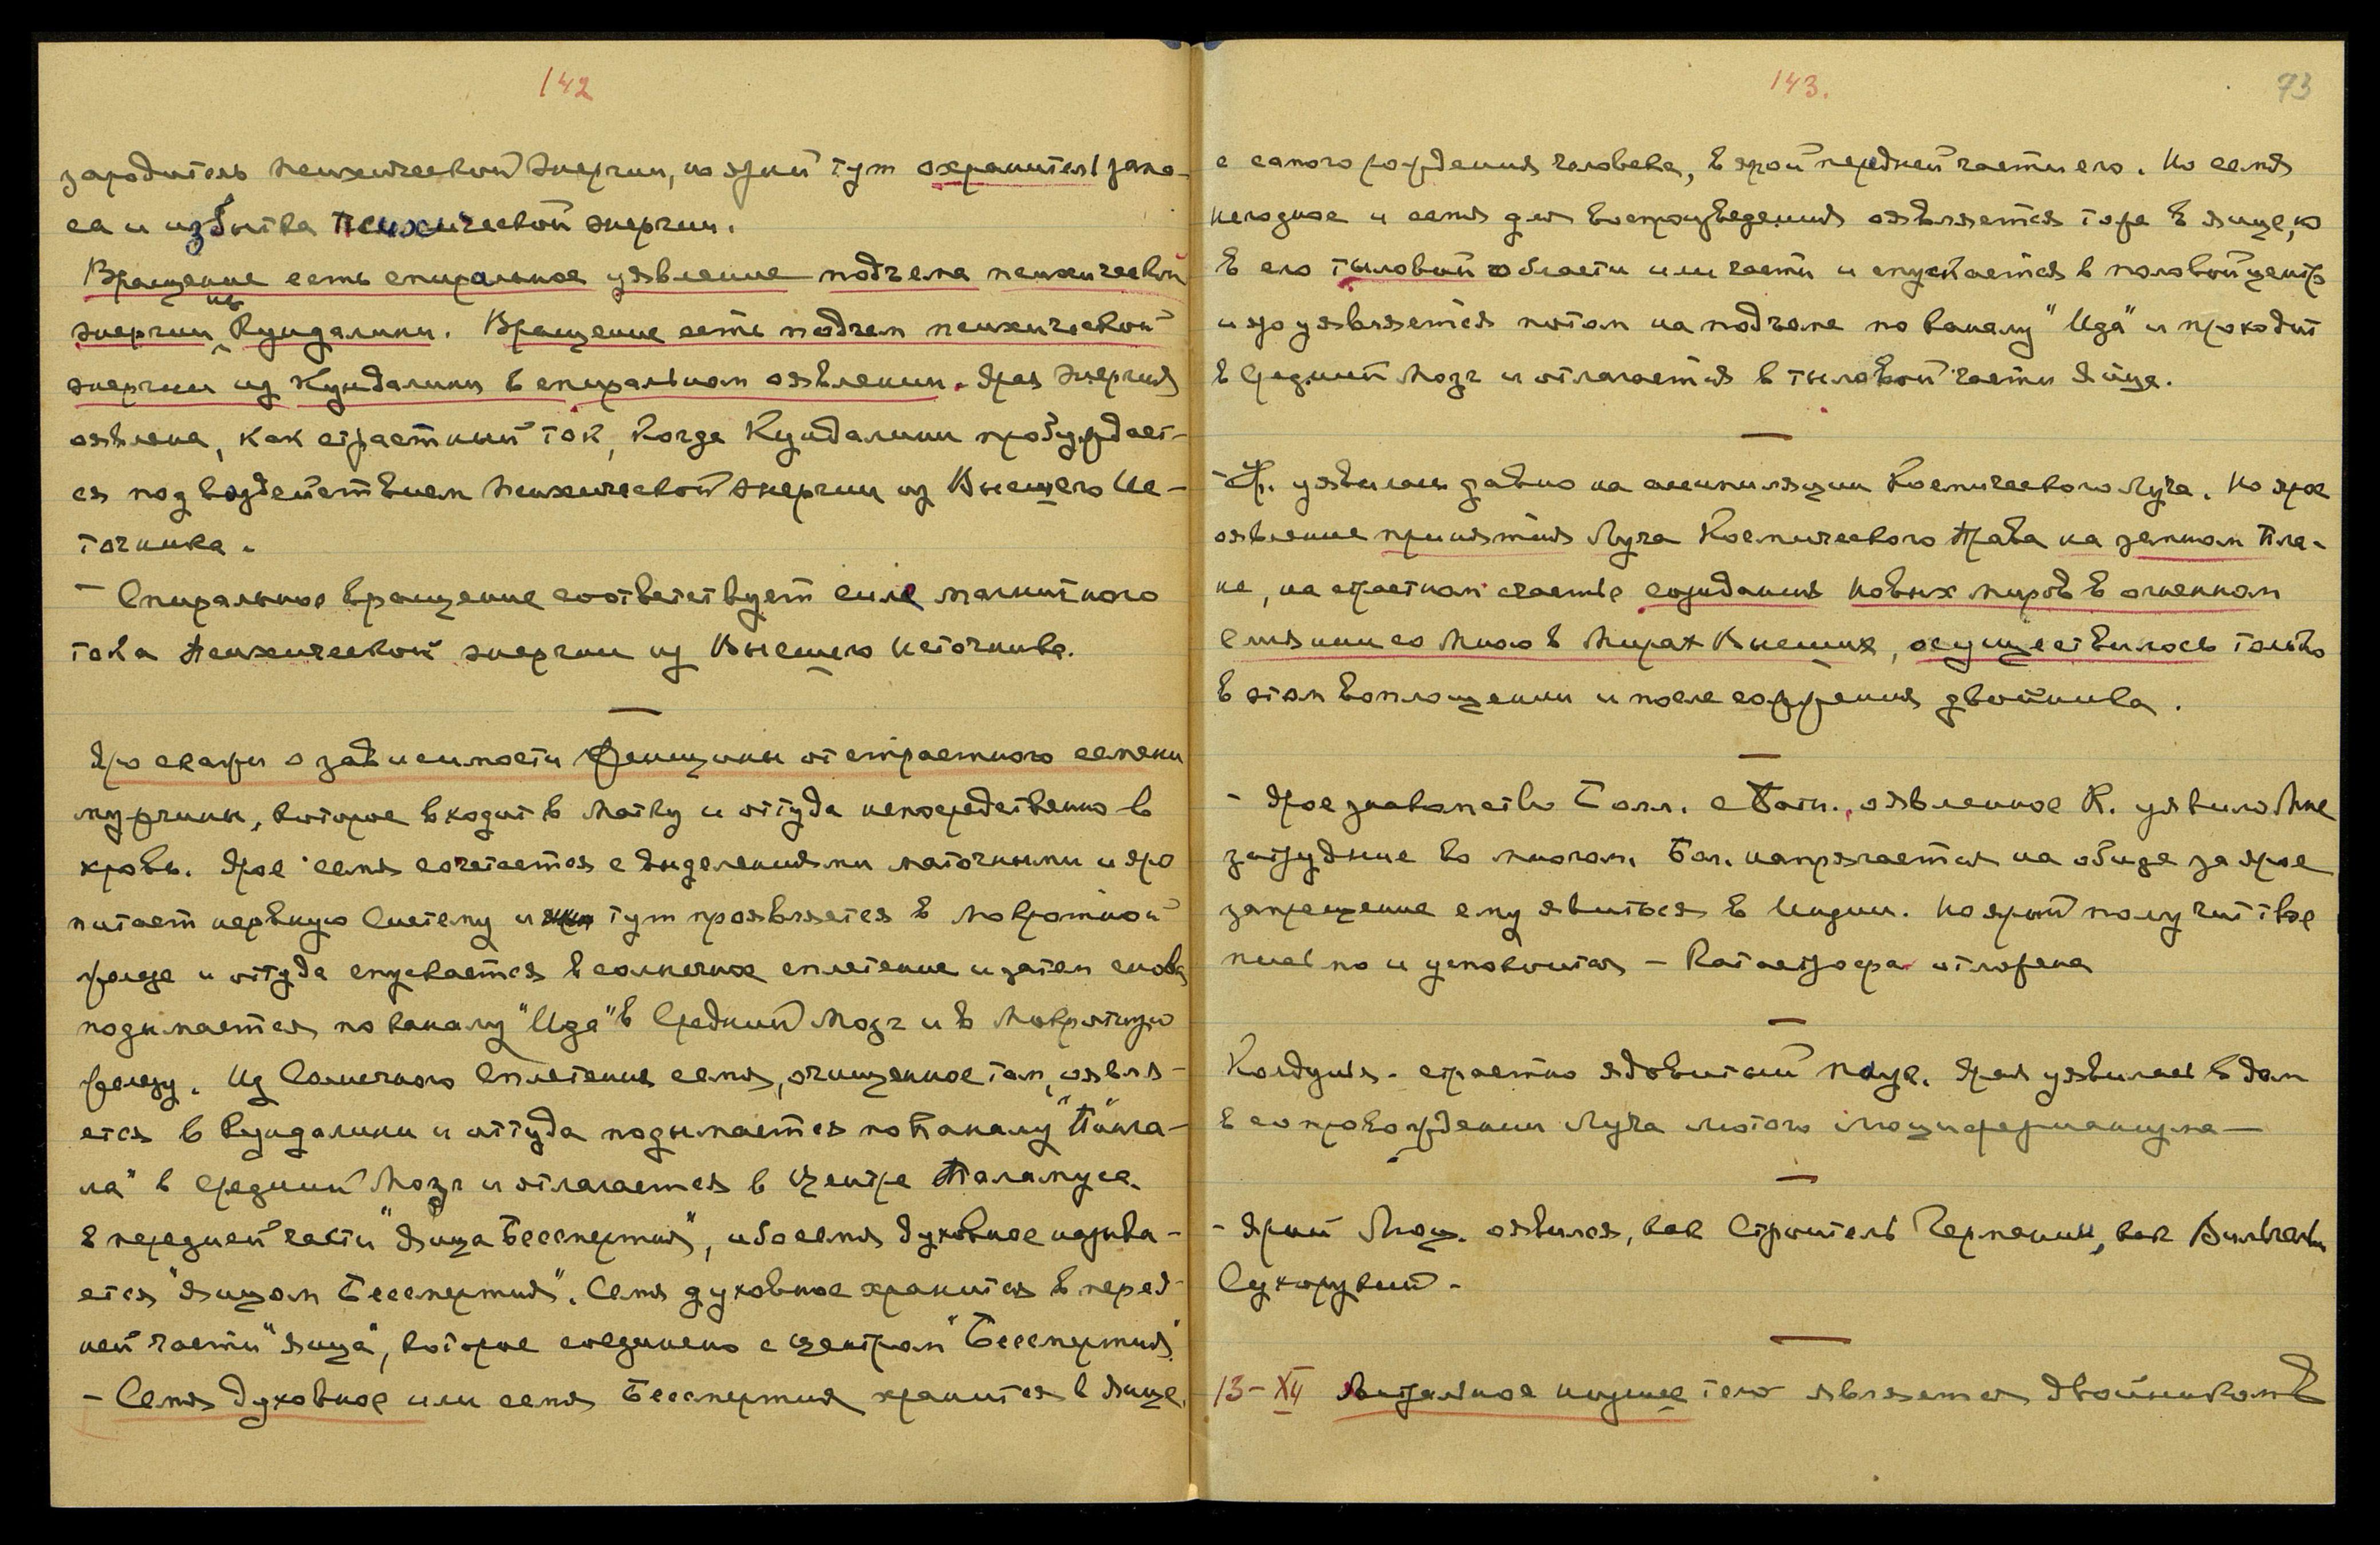 142
зародитель психической энергии, но ярый тут охранитель запа-
са и избытка психической энергии.
Вращение есть спиральное уявление подъема психической
энергии из Кундалини. Вращение есть подъем психической
энергии из Кундалини в спиральном оявлении. Ярая энергия
оявлена, как страстный ток, когда Кундалини пробуждает-
ся под воздействием психической энергии из Высшего Ис-
точника.
– Спиральное вращение соответствует силе магнитного
тока психической энергии из Высшего источника.
Яро скажи о зависимости женщины от страстного семени
мужчины, которое входит в матку и оттуда непосредственно в
кровь. Ярое семя сочетается с выделениями маточными и яро
питает нервную систему и тут проявляется в мокротной
железе и оттуда спускается в солнечное сплетение и затем снова
подымается по каналу "Ида" в Средний Мозг и в Мокротную
железу. Из Солнечного Сплетения семя, очищенное там, оявля-
ется в Кундалини и оттуда подымается по каналу "Пинга-
ла" в средний Мозг и отлагается в центре Таламуса
в передней части "Яйца Бессмертия", ибо семя духовное называ-
ется "Яйцом Бессмертия". Семя духовное хранится в перед-
ней части "яйца", которое соединено с центром "Бессмертия"
– Семя духовное или семя Бессмертия хранится в яйце,
143.
73
с самого рождения человека, в ярой передней части его. Но семя
исходное и семя для воспроизведения оявляется тоже в яйце, но
в его тыловой области или части и спускается в половой центр
и яро уявляется потом на подъеме по каналу "Ида" и проходит
в Средний Мозг и отлагается в тыловой части яйца.
– Ур. уявилась давно на ассимиляции Космического Луча. Но ярое
оявление принятия Луча Космического Права на земном пла-
не, на страстном счастье созидания новых миров в огненном
слиянии со Мною в Мирах Высших, осуществилось только
в этом воплощении и после сожжения двойника.
– Ярое знакомство Болл. с оявленное К. уявило Мне
затруднение во многом. Бол. напрягается на обиде за ярое
запрещение ему явиться в Индии. Но ярый получит твое
письмо и успокоится – Катастрофа отложена
Колдунья – страстно ядовитый паук. Ярая уявилась в дом
в сопровождении Луча лютого
– Ярый Люц. оявился, как Строитель Германии, как Вильгельм
Сухорукий –
13–XII Астральное низшее тело является двойником